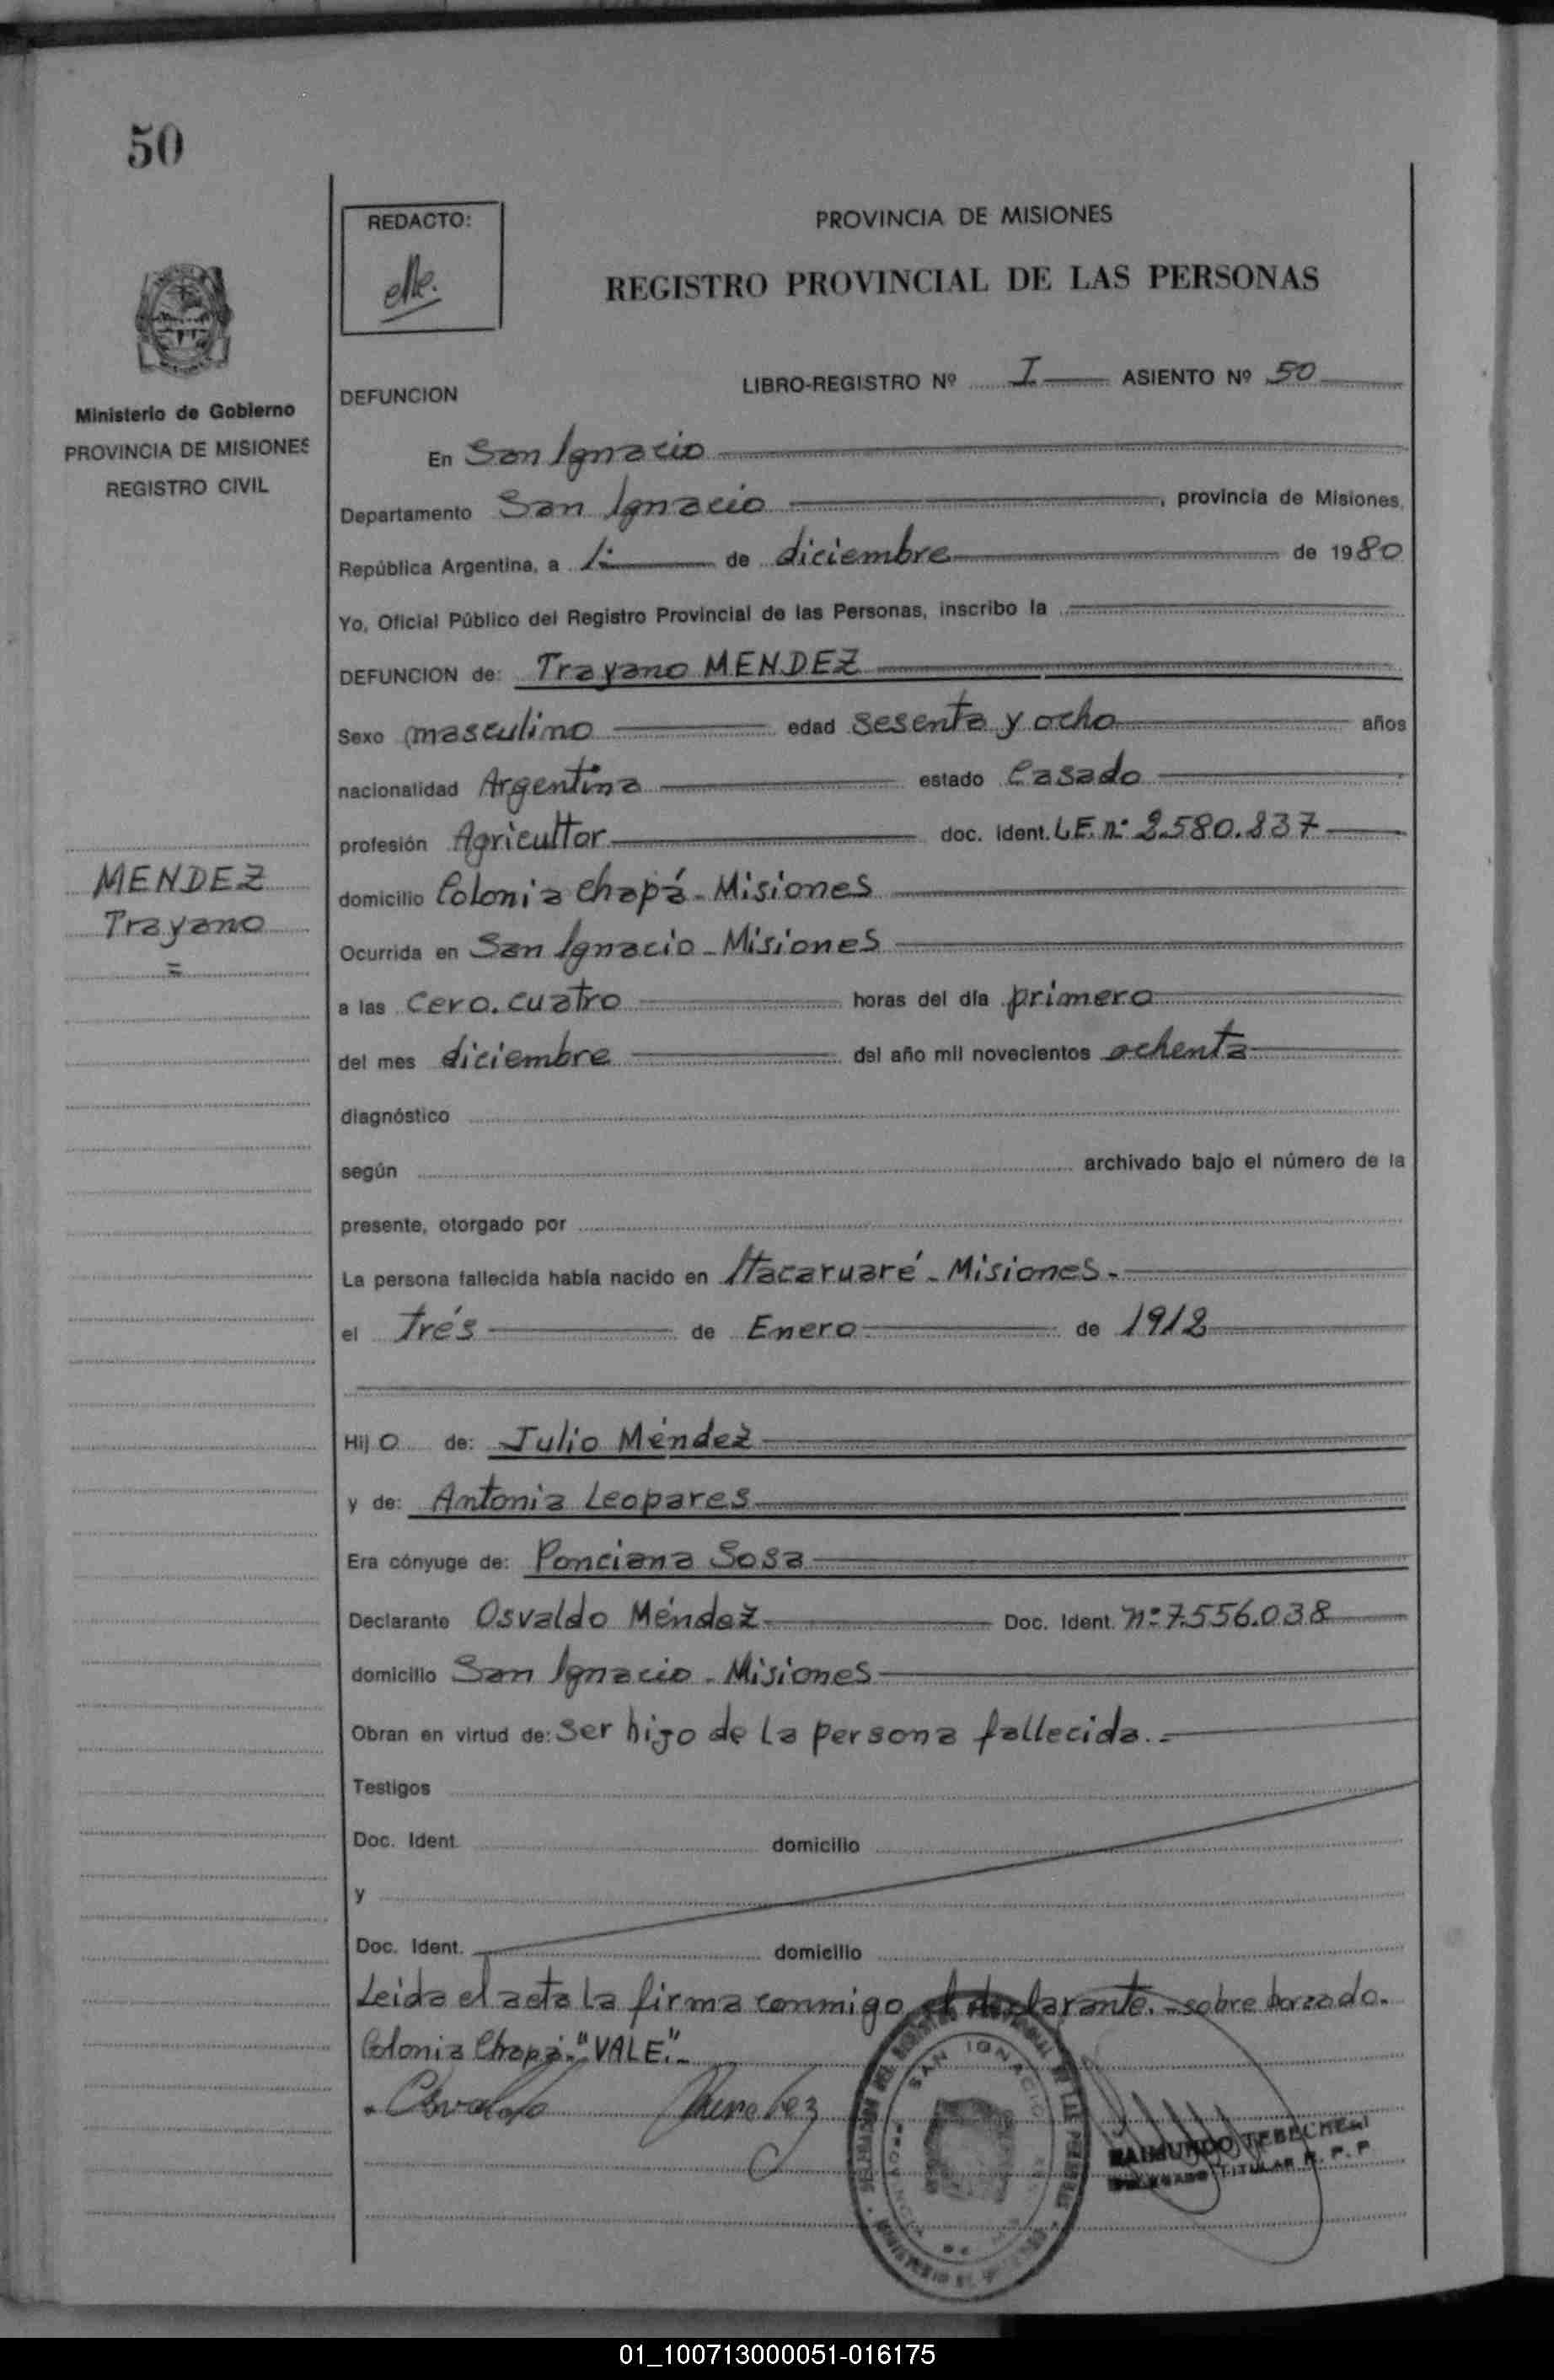 50
REDACTO:
PROVINCIA DE MISIONES
REGISTRO PROVINCIAL DE LAS PERSONAS
Ministerio de Gobierno
PROVINCIA DE MISIONES
REGISTRO CIVIL
DEFUNCION LIBRO-REGISTRO Nº I ASIENTO Nº 50
En San Ignacio
Departamento San Ignacio, provincia de Misiones,
República Argentina, a 1: de diciembre de 1980
Yo, Oficial Público del Registro Provincial de las Personas, inscribo la
DEFUNCION de: Trayano MENDEZ
Sexo masculino edad sesenta y ocho años
nacionalidad Argentina estado Casado
profesión Agricultor doc. ident. L.E. nº 2.580.837
MENDEZ
Trayano
=
domicilio Colonia Chapá - Misiones
Ocurrida en San Ignacio - Misiones
a las cero.cuatro horas del día primero
del mes diciembre del año mil novecientos ochenta
diagnóstico
según archivado bajo el número de la
presente, otorgado por
La persona fallecida había nacido en Itacaruaré - Misiones.-
el trés de Enero de 1912
Hijo de: Julio Méndez
y de: Antonia Leopares
Era cónyuge de: Ponciana Sosa
Declarante Osvaldo Méndez Doc. Ident. nº 7.556.038
domicilio San Ignacio - Misiones
Obran en virtud de: ser hijo de la persona fallecida.=
Testigos
Doc. Ident. domicilio
y
Doc. Ident. domicilio
Leida el acta la firma conmigo el declarante.- sobre borrado.
Colonia Chapá:"VALE".-
Osvaldo Mendez
SAN IGNACIO
RAIMUNDO TEBECHERI
TITULAR R. P. P.
01_100713000051-016175